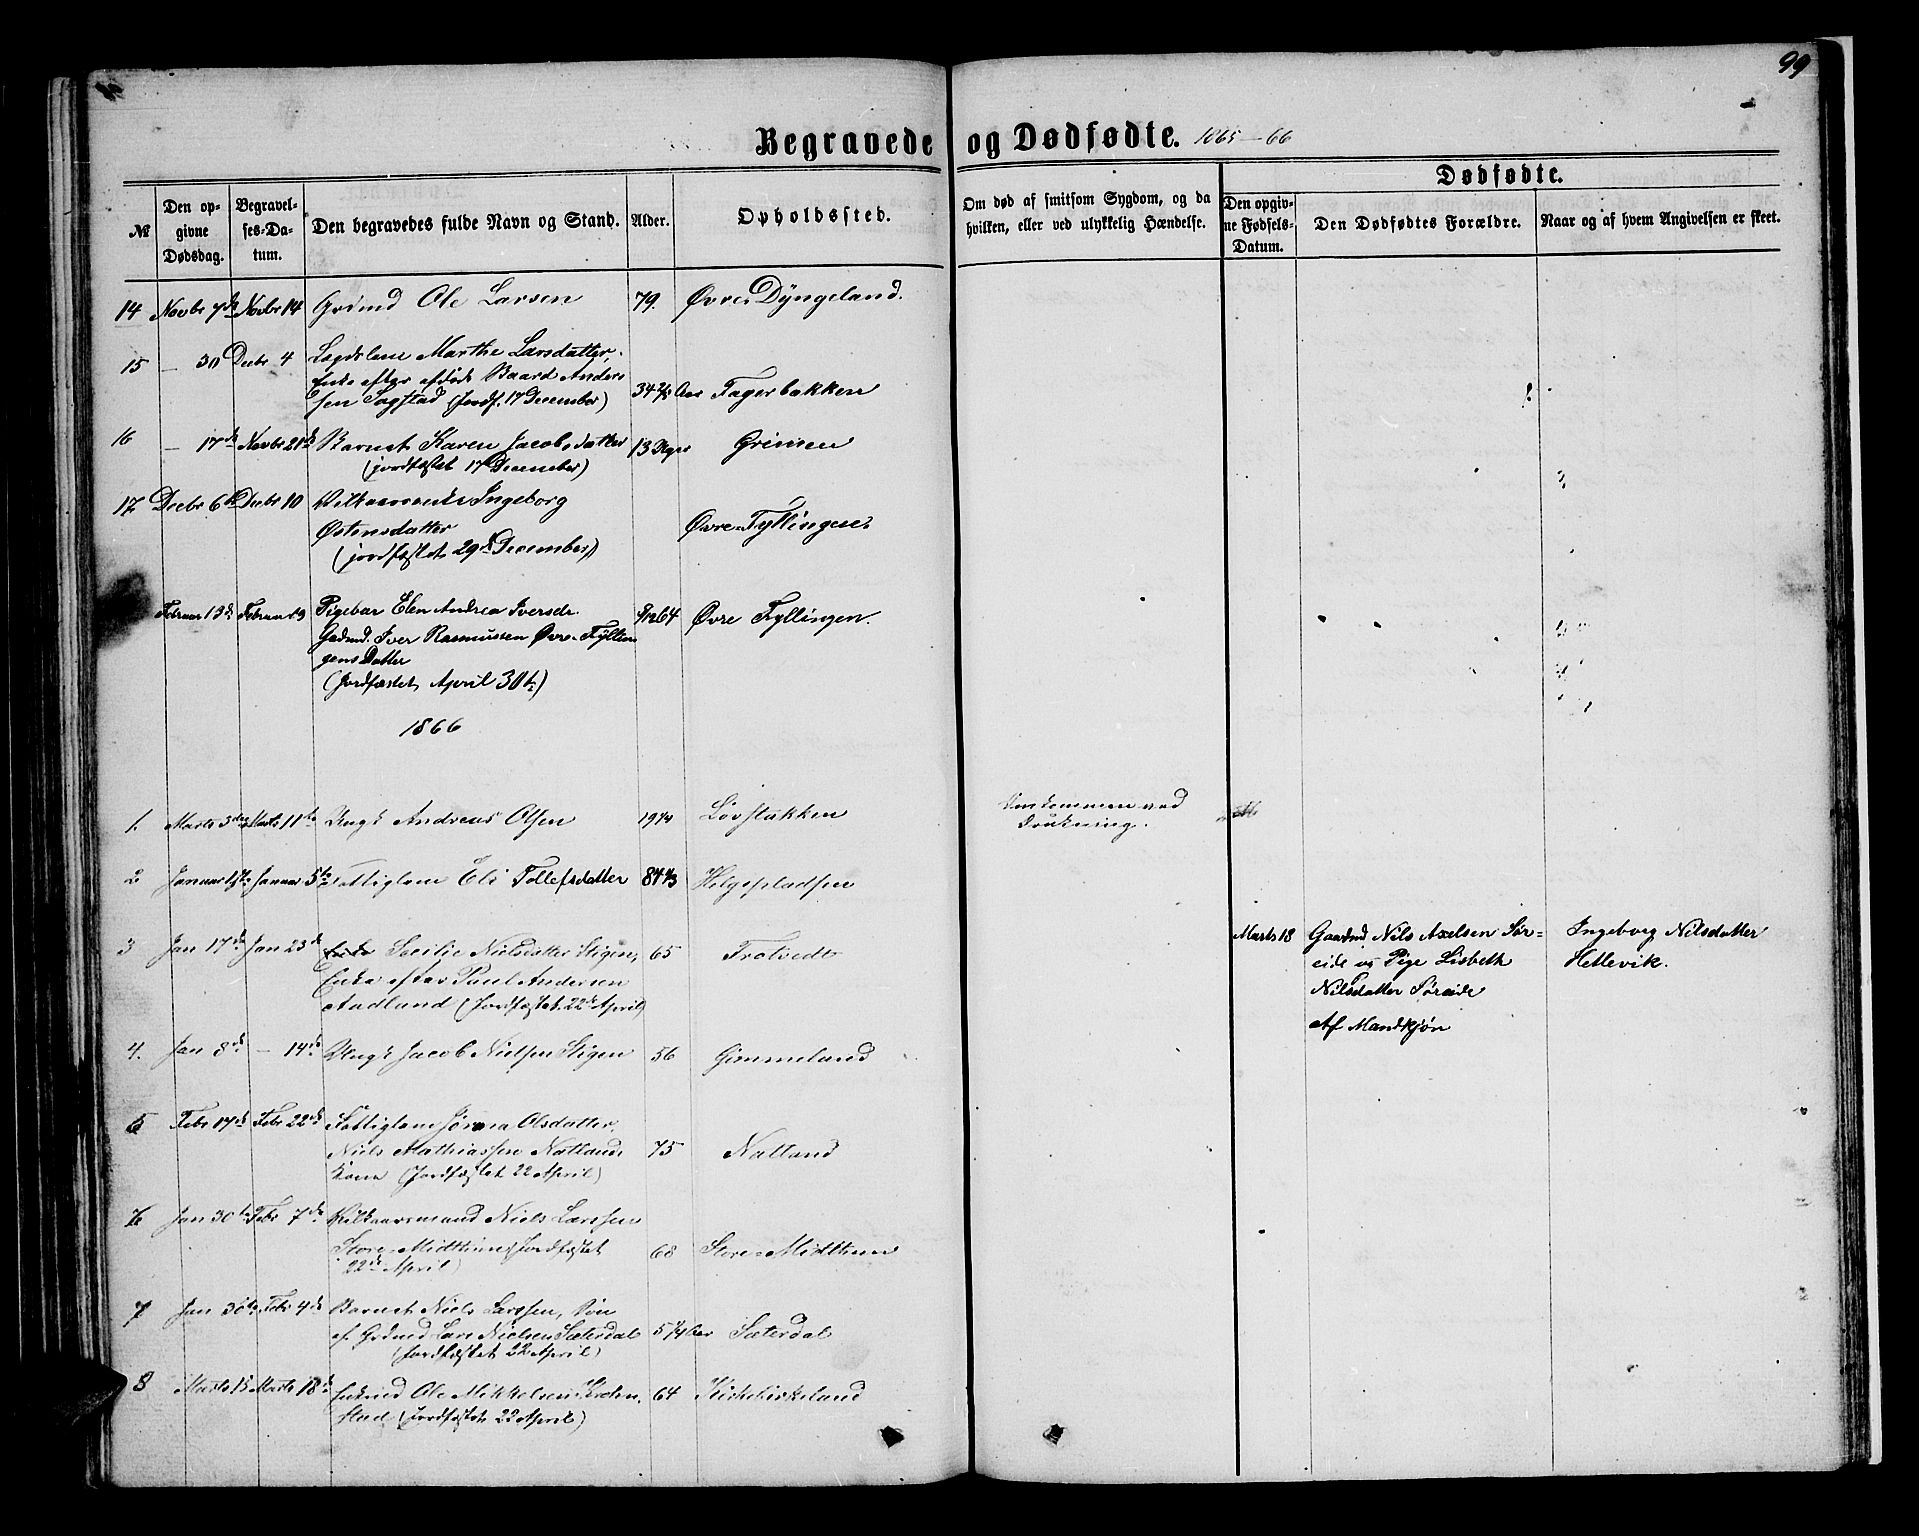 99
Begravede og Dødfødte. 1865-66
Dødfødte.
№
Den opgivne Dødsdag.
Begravelses-Datum.
Den begravedes fulde Navn og Stand.
Alder.
Opholdssted.
Om død af smitsom Sygdom, og da hvilken, eller ved ulykkelig Hændelse.
Den opgivne Fødsels-Datum.
Den Dødfødtes Forældre.
Naar og af hvem Angivelsen er skeet.
14 Novbr 7de Novbr 14 Grdmd Ole Larsen 79. Øvre Dyngeland.
15 — 30 Decbr 4 Lægdslem Marthe Larsdatter,
Enke efter afdøde Baard Ander-
sen Sagstad (Jordf. 17 December) 34 Aar Fagerbakken
16 — 17de Novbr 21de Barnet Karen Jacobsdatter 13 Dage Grimen
(jordfæstet 17 December)
17 Decbr 6te Decbr 10 Vilkaarsenke Ingeborg
Østensdatter Øvre-Fyllingen
(jordfæstet 29de December)
Februar 13de Februar 19 Pigebar Elen Andrea Iversdr. 9/1264 Øvre Fyllingen.
Gadmd. Iver Rasmussen Øvre-Fyllin
gens Datter
(Jordfæstet April 30te)
1866
1. Marts 3die Marts 11te Ungk Andreas Olsen 19 1/4 Løvstakken Omkommen ved
Drukning.
2 Januar 1ste Januar 5te Fattiglem Eli Tollefsdatter 84 1/3 Helgepladsen
3 Jan 17de Jan 23de Enke Secilie Nielsdatter Stigen, 65 Trotvedt
Enke efter Paul Andersen
Aadland (Jordfæstet 22de April)
Marts 18 Gaardmd Nils Axelsen Sør-
eide og Pige Lisbeth
Nilsdatter Søreide
Af Mandkjøn
Ingeborg Nilsdatter
Hettevik.
4. Jan 8de — 14de Ungk Jacob Nielsen Stigen 56 Gimmeland
5 Febr 17de Febr 22de Fattiglem Jørna Olsdatter,
Niels Mathiassen Natlands 75 Natland
Kone (Jordfæstet 22 April)
6 Jan 30te Febr 7de Vilkaarsmand Niels Larsen
Store-Midttun (Jordfæstet 68 Store-Midttun
22de April)
7 Jan 30te Febr 4de Barnet Niels Larsen, Søn
af Grdmd Lars Nielsen Sæterdal 5 1/4 Aar Sæterdal
(Jordfæstet 22 April)
8 Marts 13 Marts 18de Enkmd Ole Mikkelsen 64 Kirkebirkeland
stad (Jordfæstet 22 April)